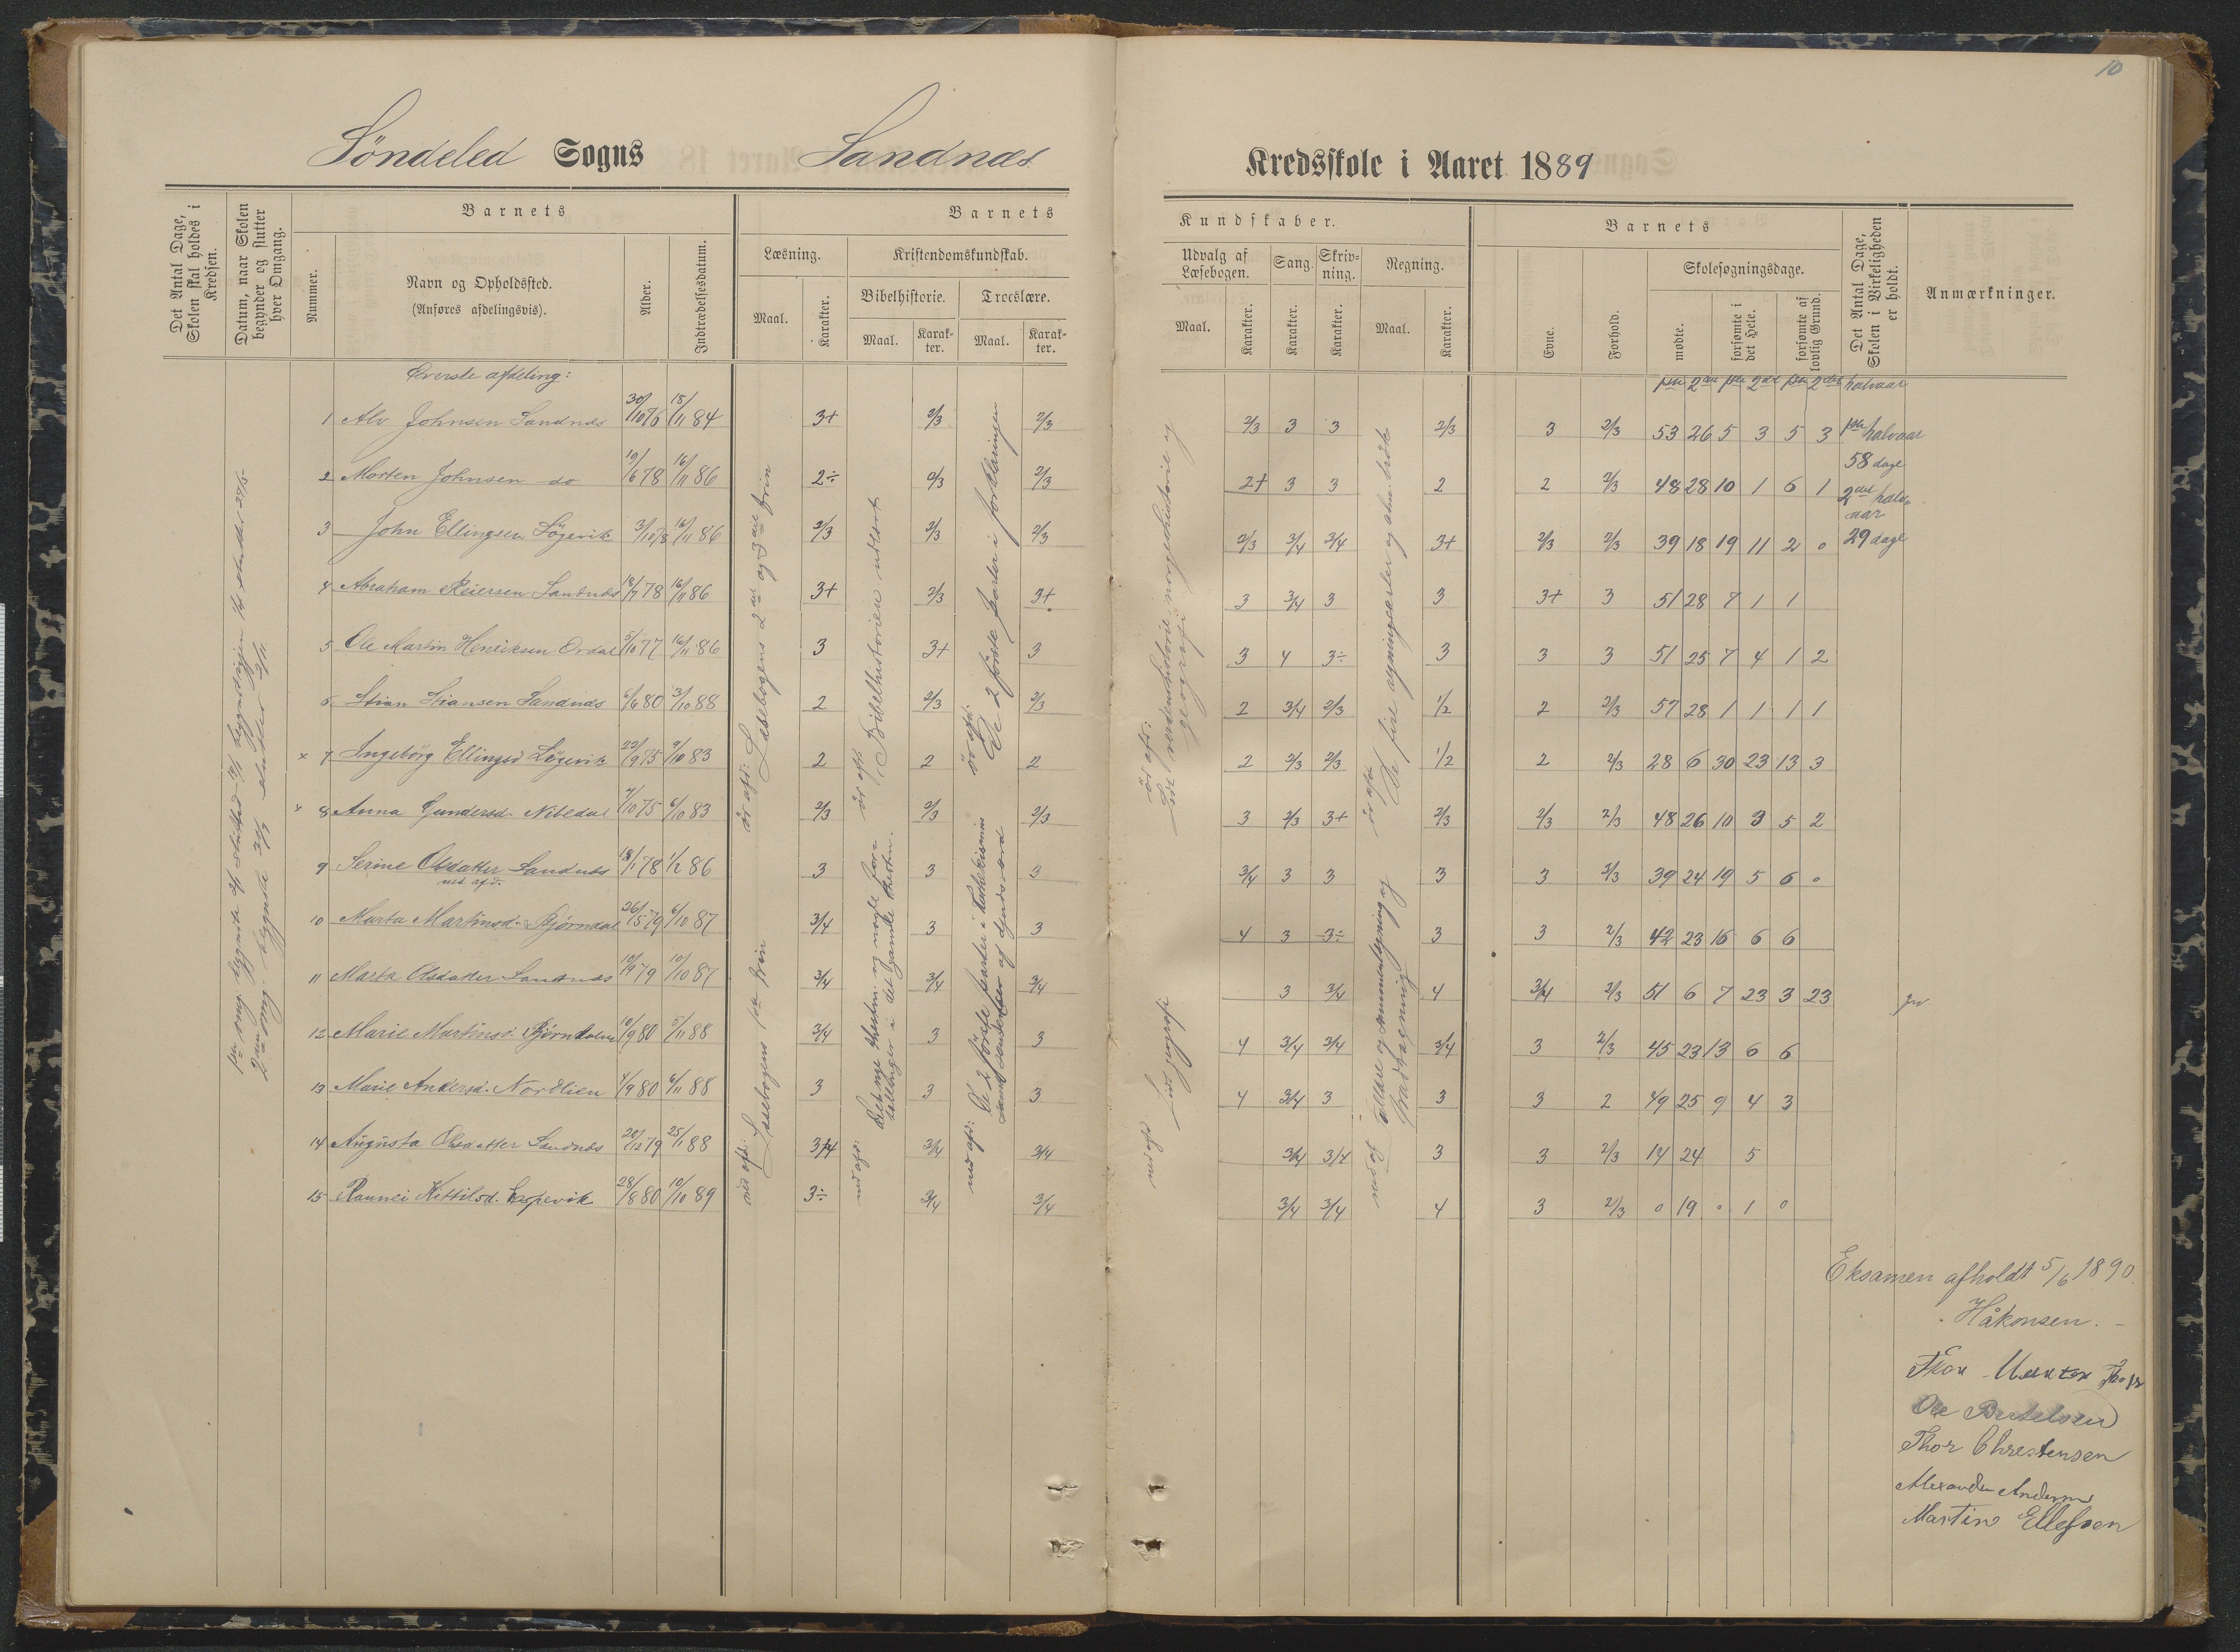 10
Söndeled Sogns Sandnæs Kredsskole i Aaret 1889
Det Antal Dage, Skolen skal holdes i Kredsen.
Datum, naar Skolen begynder og slutter hver Omgang.
Barnets
Nummer.
Navn og Opholdssted.
(Anføres afdelingsvis).
Alder.
Indtrædelsesdatum.
Barnets
Læsning.
Maal.
Karakter.
Kristendomskundskab.
Bibelhistorie.
Maal.
Karakter.
Troeslære.
Maal.
Karakter.
Kundskaber.
Udvalg af Læsebogen.
Maal.
Karakter.
Sang.
Karakter.
Skrivning.
Karakter.
Regning.
Maal.
Karakter.
Barnets
Evne.
Forhold.
Skolesøgningsdage.
mødte.
forsømte i det Hele.
forsømte af lovlig Grund.
Det Antal Dage, Skolen i Virkeligheden er holdt.
Anmærkninger.
Øverste afdeling:
1ste 2det 1ste 2det 1ste 2det halvaar
1 Alv Johnsen Sandnæs 30/10 76 18/11 84 3+ 2/3 2/3 2/3 3 3 2/3 3 2/3 53 26 5 3 5 3
2 Morten Johnsen do 19/6 78 16/11 86 2÷ 2/3 2/3 2+ 3 3 2 2 2/3 48 28 10 1 6 1
3 John Ellingsen Lögevik 3/10 78 16/11 86 2/3 2/3 2/3 2/3 3/4 3/4 3+ 2/3 2/3 39 18 19 11 2 0
4 Abraham Reiersen Sandnæs 18/7 78 16/11 86 3+ 2/3 3+ 3 3/4 3 3 3+ 3 51 28 7 1 1
5 Ole Martin Henriksen Ordal 5/10 77 16/11 86 3 3+ 3 3 4 3÷ 3 3 3 51 25 7 4 1 2
6 Stian Stiansen Sandnæs 6/6 80 3/10 88 2 2/3 2/3 2 3/4 2/3 1/2 2 2/3 57 28 1 1 1 1
× 7 Ingebörg Ellingsd Lögevik 22/9 75 9/10 83 2 2 2 2 2/3 2/3 1/2 2 2/3 28 6 30 23 13 3
× 8 Anna Gundersd. Nibedal 7/10 75 6/10 83 2/3 2/3 2/3 3 2/3 3+ 2/3 2/3 2/3 48 26 10 3 5 2
9 Serine Olsdatter Sandnæs 18/1 78 1/2 86 3 3 3 3/4 3 3 3 3 2/3 39 24 19 5 6 0
ned afd.
10 Marta Martinsd. Bjørndal 26/5 79 6/10 87 3/4 3 3 4 3 3÷ 3 3 2/3 42 23 16 6 6
11 Marta Olsdatter Sandnæs 10/9 79 10/10 87 3/4 3/4 3/4 3 3/4 4 3/4 2/3 51 6 7 23 3 23
12 Marie Martinsd. Bjørndalen 10/9 80 5/11 88 3/4 3 3 4 3/4 3/4 3/4 3 2/3 45 23 13 6 6
13 Marie Andersd. Nordlien 4/9 80 6/11 88 3 3 3 4 3/4 3 3 3 2 49 25 9 4 3
14 Augusta Olsdatter Sandnæs 20/12 79 25/1 88 3/4 3/4 3/4 3/4 3/4 3 3 2/3 14 24 5
15 Rannei Kittilsd. Espevik 28/8 80 10/10 89 3÷ 3/4 3/4 3/4 3/4 4 3 2/3 0 19 0 1 0
1ste halvaar
58 dage
2det halv-
aar
29 dage
ör afd: Læsebogens 2det og 3die trin
ned afd: Læsebogens 1ste trin
ör afd: Bibelhistorien udlært
ned afd: Det nye testm. og nogle for-
tællinger i det gamle testm.
ör afd: De 2 förste parter i forklaringen
ned afd: De 2 förste parter i katekismus
ör afd: Lidt verdenshistorie, norgeshistorie og
geografi
ned afd Lidt geografi
ör afd: De fire regningsarter
ned afd
Eksamen afholdt 5/6 1890.
Håkonsen.
Ole Bertelsen
Thor Chrestensen
Alexander Andersen
Martin Ellefsen